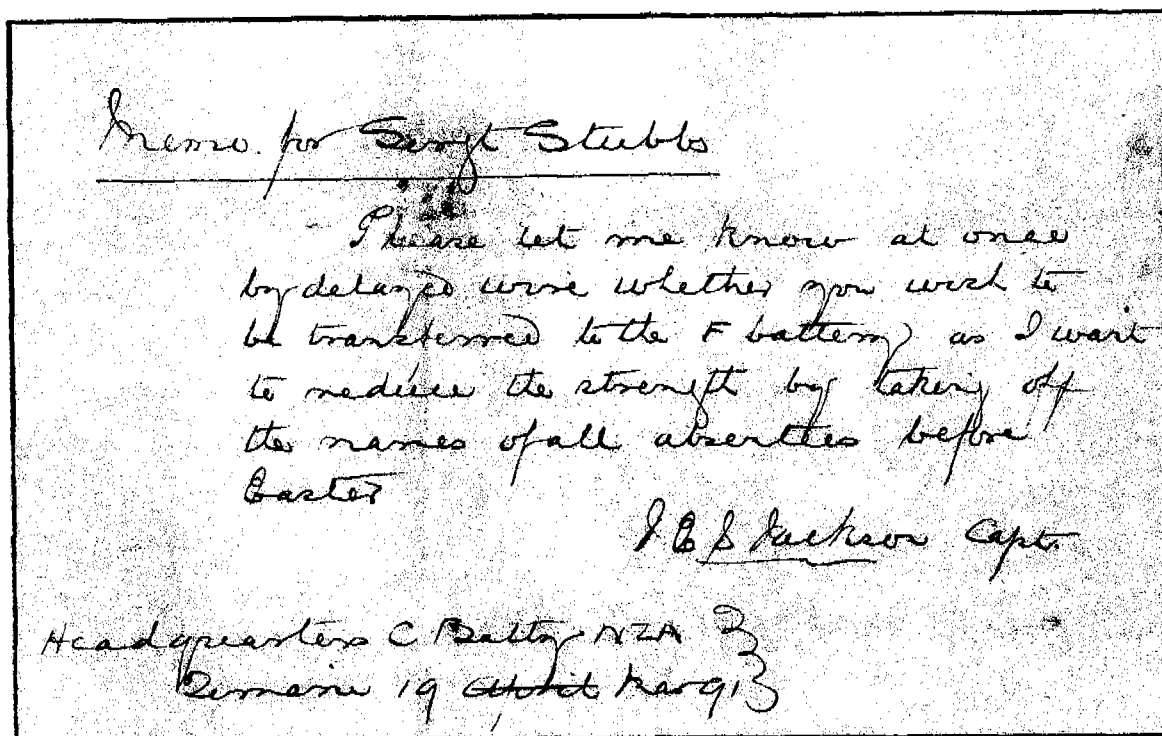 Memo. for Sergt Stubbs
Please let me know at once
by delayed wire whether you wish to
be transferred to the F battery as I want
to reduce the strength by taking off
the names of all absentees before
Easter
J E S Jackson Capt.
Headquarters C Batty NZA
19 April Mar 91